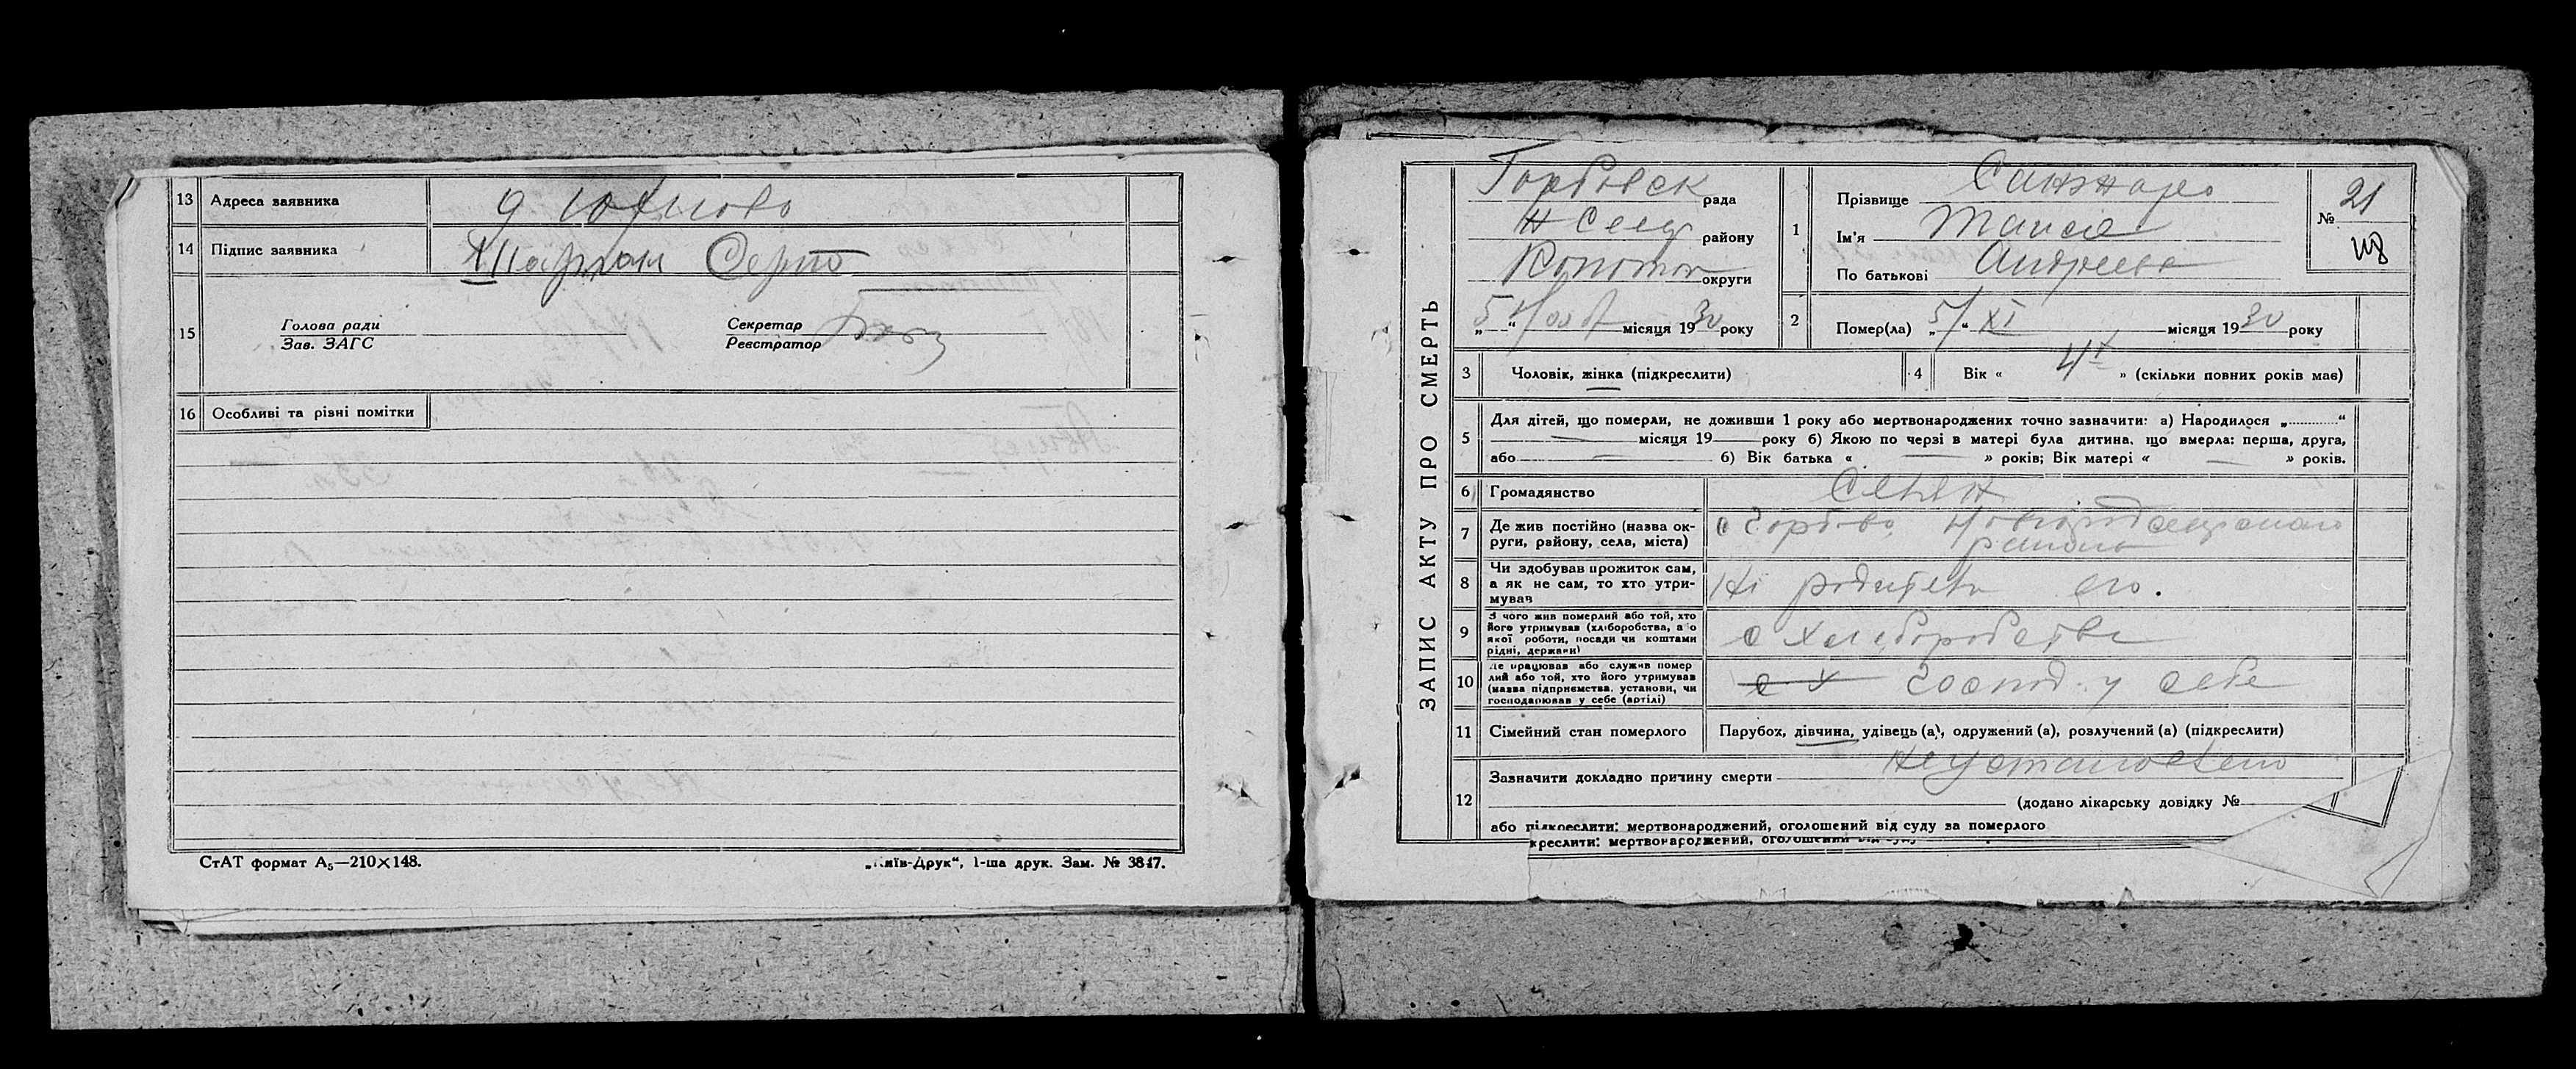 13 Адреса заявника
14 Підпис заявника
15 Голова ради
Зав. ЗАГС
Секретар
Реєстратор
16 Особливі та різні помітки
СтАТ формат А5—210×148.
„Київ-Друк“, 1-ша друк. Зам. № 3847.
ЗАПИС АКТУ ПРО СМЕРТЬ
Горбовск рада
району
Конотоп округи
„5“ місяця 1930 року
1 Прізвище
Ім'я Таисия
По батькові Андреева
№ 21
2 Помер(ла) „5/“ XI місяця 1930 року
3 Чоловік, жінка (підкреслити)
4 Вік « 4 » (скільки повних років має)
5 Для дітей, що померли, не доживши 1 року або мертвонароджених точно зазначити: а) Народилося „..........“
місяця 19 року б) Якою по черзі в матері була дитина, що вмерла: перша, друга,
або б) Вік батька « » років; Вік матері « » років.
6 Громадянство
7 Де жив постійно (назва ок-
руги, району, села, міста)
с Горбово
района
8 Чи здобував прожиток сам,
а як не сам, то хто утри-
мував
Ні его.
9 З чого жив померлий або той, хто
його утримував (хліборобства, або
якої роботи, посади чи коштами
рідні, держави)
с хлеборобства
10 Де працював або служив помер
лий або той, хто його утримував
(назва підприємства, установи, чи
господарював у себе (артілі)
господ. у себе
11 Сімейний стан померлого
Парубох, дівчина, удівець (а), одружений (а), розлучений (а) (підкреслити)
12 Зазначити докладно причину смерти Неустановлено
(додано лікарську довідку №
або підкреслити: мертвонароджений, оголошений від суду за померлого
креслити: мертвонароджений, оголошений від суду